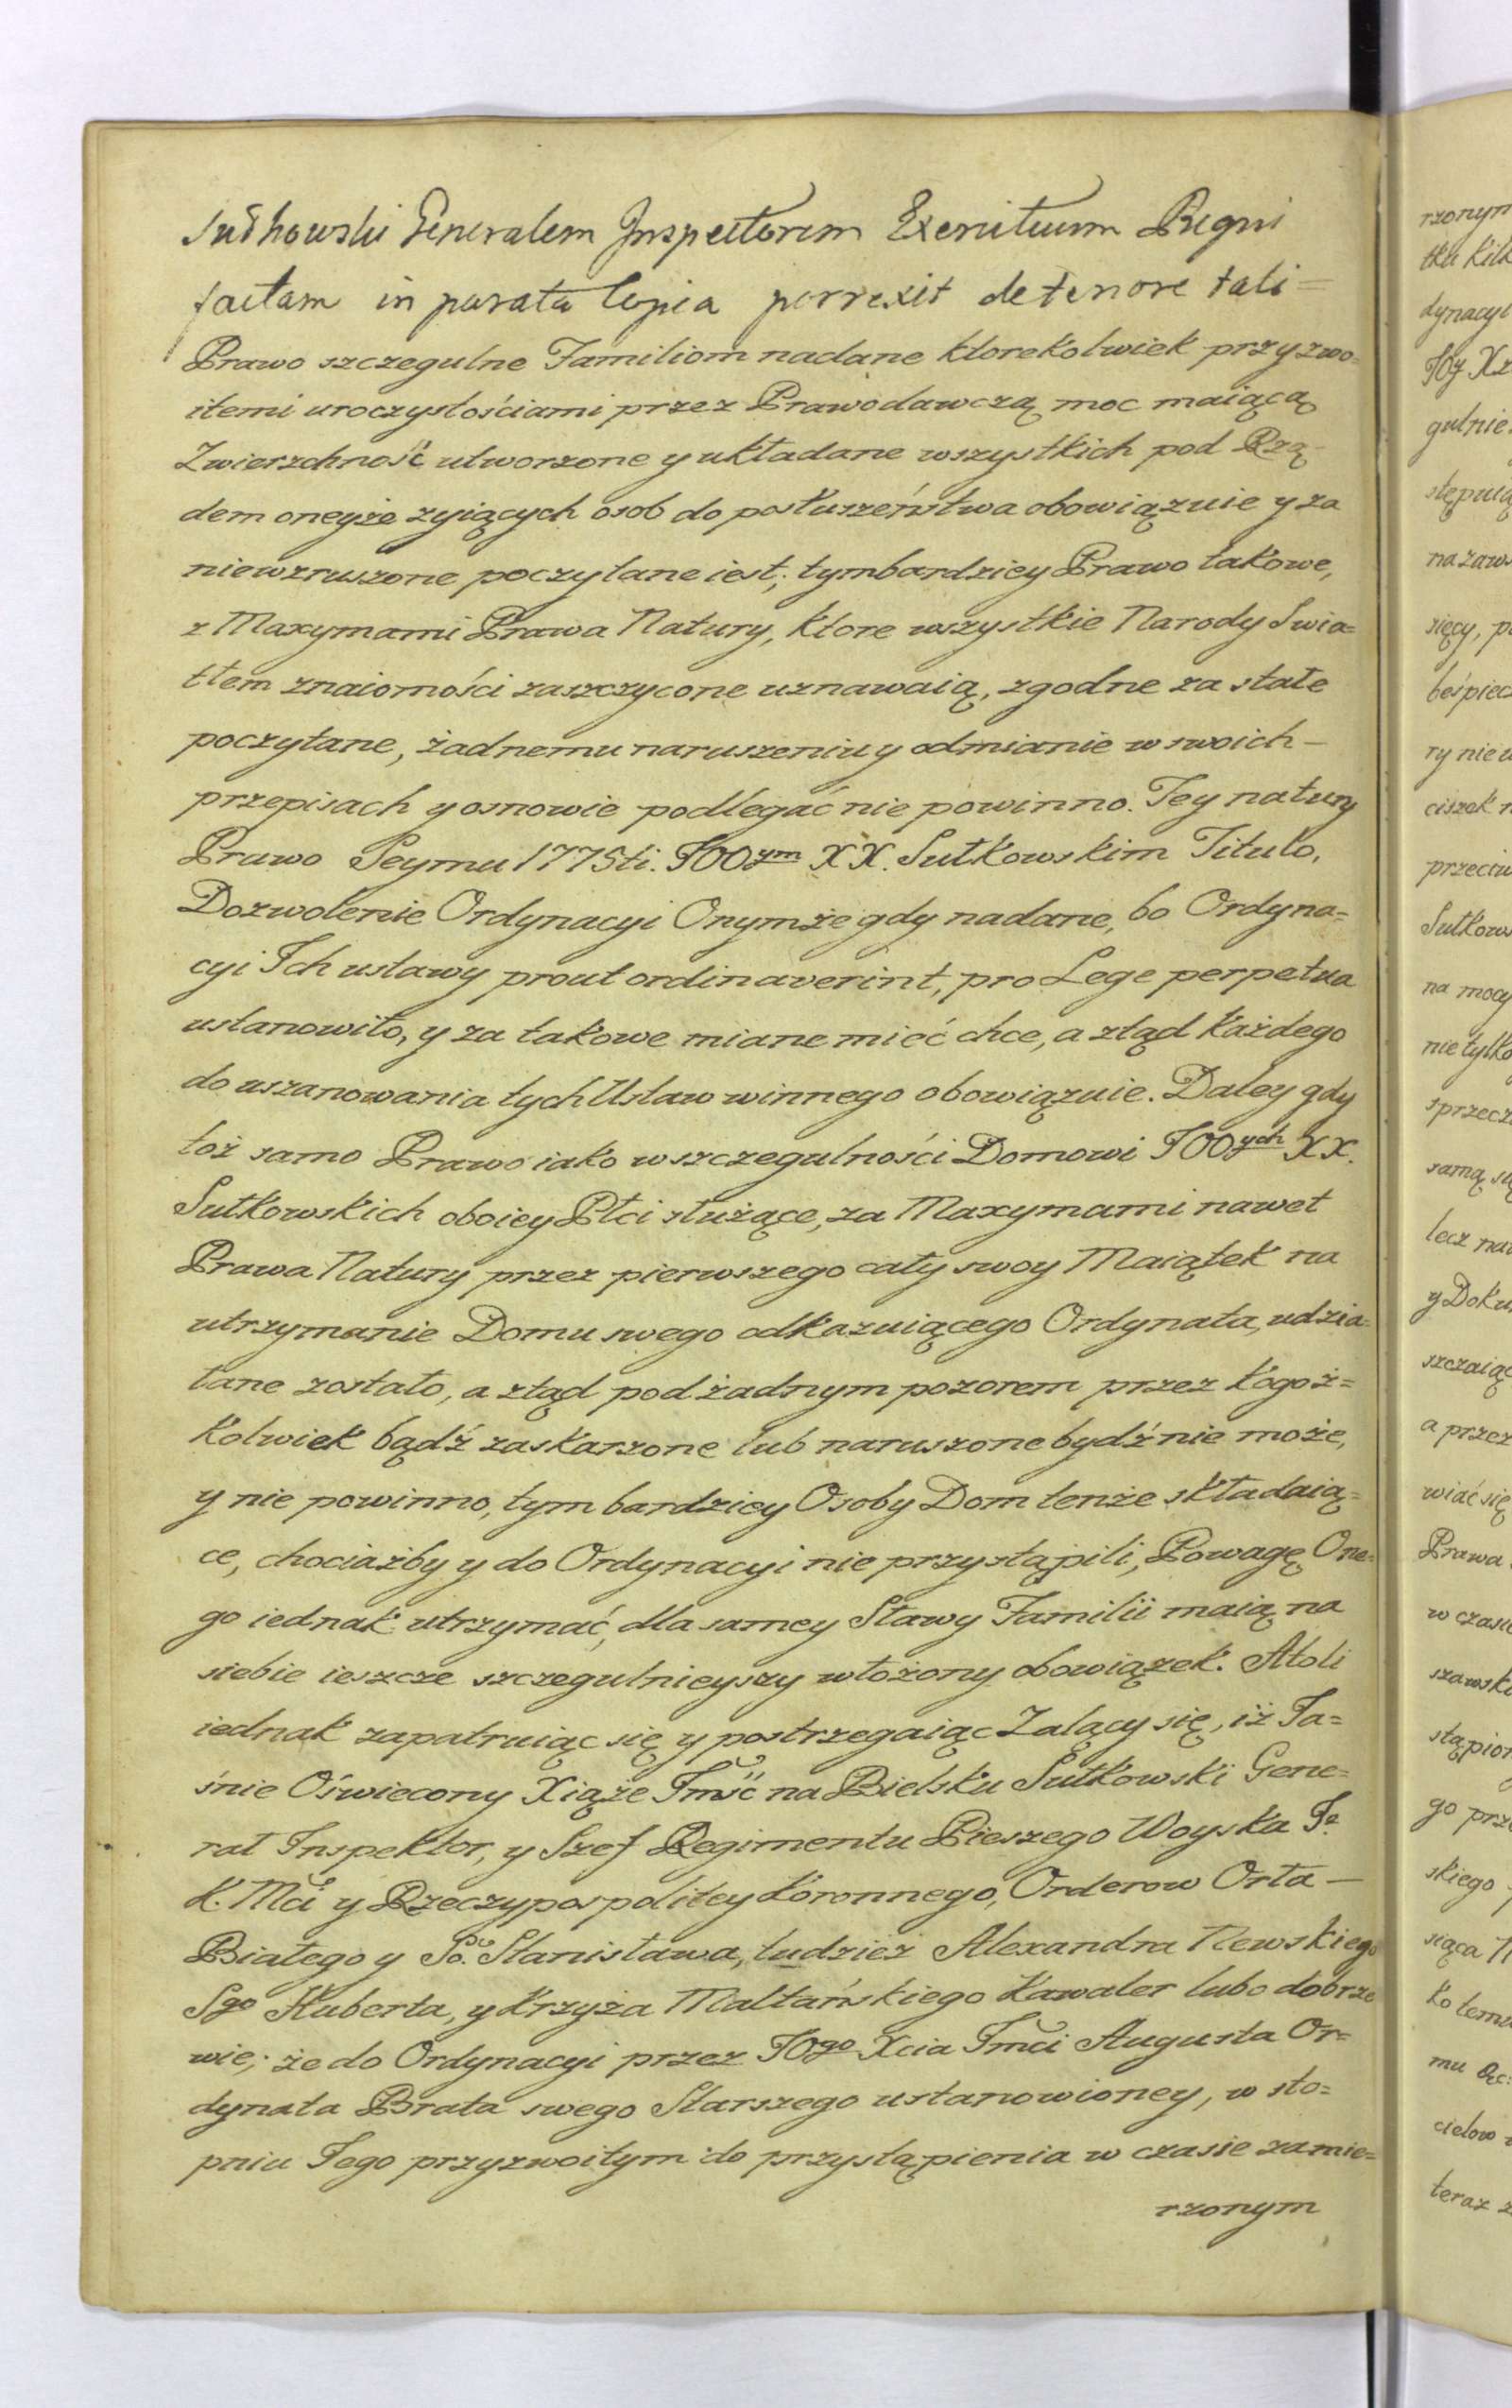 Sułkowski Generalem Inspectorem Exercituum Regni
factam in parata Copia porrexit de tenore tali =
Prawo szczegulne Familiom nadane ktorekolwiek przyzwo=
itemi uroczystościami przez Prawodawczą moc maiącą
Zwierzchność utworzone y układane wszystkich pod Rzą-
dem oneyże zyiących osob do posłuszeństwa obowiązuie y za
niewzruszone poczytane iest; tymbardziey Prawo takowe,
z Maxymami Prawa Natury, ktore wszystkie Narody Swia=
tłem znaiomości zaszczycone uznawaią, zgodne za stałe
poczytane, żadnemu naruszeniu y odmianie w swoich –
przepisach y osnowie podlegać nie powinno. Tey natury
Prawo Seymu 1775ti. JOOym XX. Sułkowskim Titulo,
Dozwolenie Ordynacyi Onymże gdy nadane, bo Ordyna=
cyi Ich ustawy prout ordinaverint, pro Lege perpetua
ustanowiło, y za takowe miane mieć chce, a ztąd każdego
do uszanowania tych Ustaw winnego obowiązuie. Daley gdy
toż samo Prawo iako w szczegulności Domowi JOOych XX.
Sułkowskich oboiey Płci służące, za Maxymami nawet
Prawa Natury przez pierwszego cały swoy Maiątek na
utrzymanie Domu swego odkazuiącego Ordynata, udzia=
łane zostało, a ztąd pod żadnym pozorem przez kogoż=
kolwiek bądź zaskarzone lub naruszone bydź nie może,
y nie powinno, tym bardziey Osoby Dom tenże składaią=
ce, chociażby y do Ordynacyi nie przystąpili, Powagę One=
go iednak utrzymać, dla samey Sławy Familii maią na
siebie ieszcze szczegulnieyszy włożony obowiązek. Atoli
iednak zapatruiąc się y postrzegaiąc Zalący się, iż Ja=
śnie Oświecony Xiąże Jmść na Bielsku Sułkowski Gene=
rał Inspektor, y Szef Regimentu Pieszego Woyska J.
K. Mci y Rzeczypospolitey Koronnego, Orderow Orła –
Białego y So. Stanisława, tudzież Alexandra Newskiego
Sgo Huberta, y Krzyża Maltańskiego Kawaler lubo dobrze
wie; że do Ordynacyi przez JOgo Xcia Jmci Augusta Or=
dynata Brata swego Starszego ustanowioney, w sto=
pniu Jego przyzwoitym do przystąpienia w czasie zamie=
rzonym